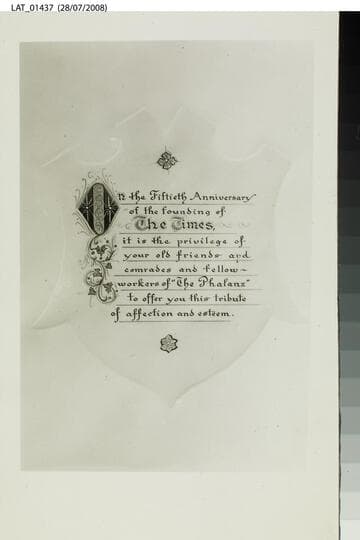 LAT_01437 (28/07/2008)
On the Fiftieth Anniversary
of the founding of
The Times,
it is the privilege of
your old friends and
comrades and fellow-
workers of "The Phalanx"
to offer you this tribute
of affection and esteem.